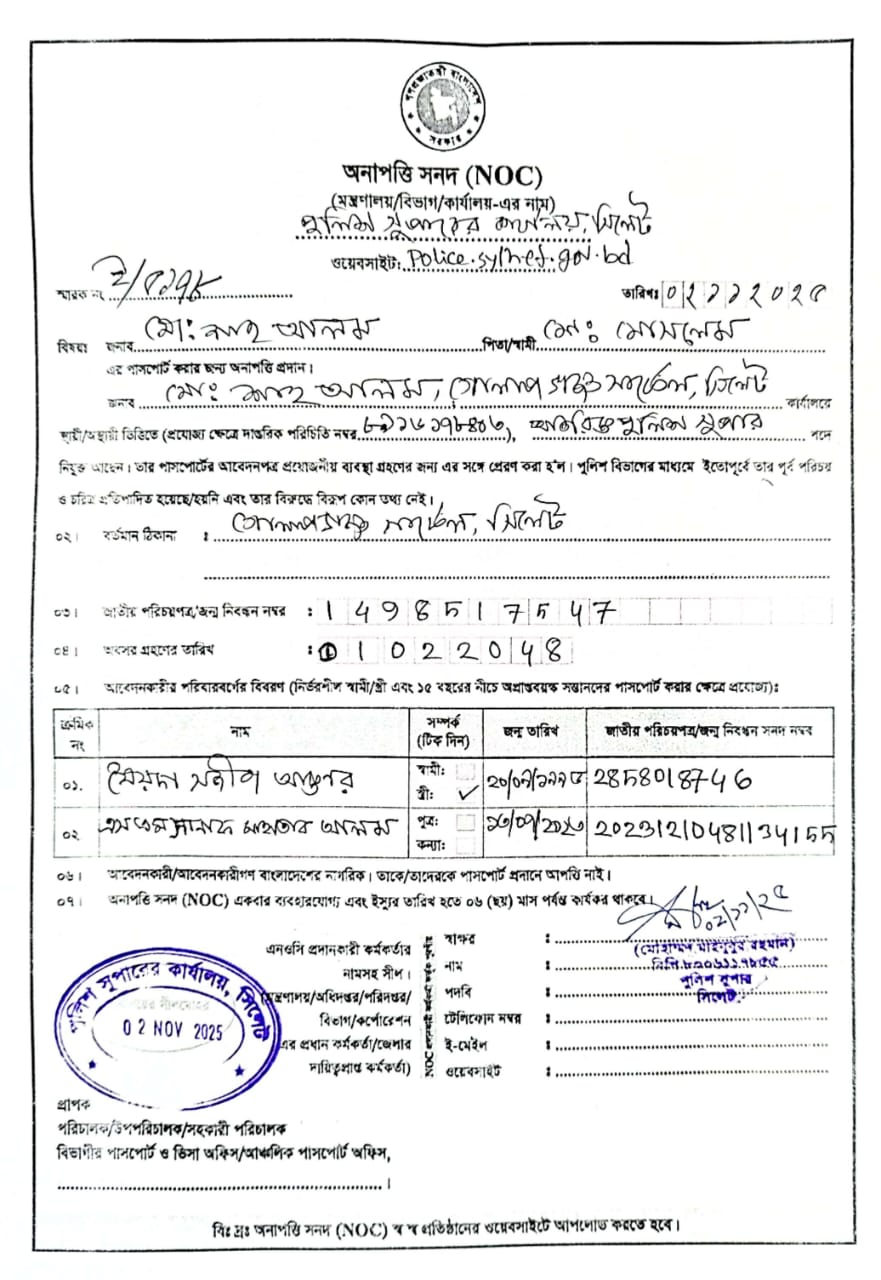 গণপ্রজাতন্ত্রী বাংলাদেশ
সরকার
অনাপত্তি সনদ (NOC)
(মন্ত্রণালয়/বিভাগ/কার্যালয়-এর নাম)
পুলিশ সুপারের কার্যালয়, সিলেট
ওয়েবসাইট: Police.sylhet.gov.bd
স্মারক নং ই/৫১৭৮
তারিখঃ ০২১১২০২৫
বিষয়ঃ জনাব মো: শাহ আলম পিতা/স্বামী মোঃ মোসলেম
এর পাসপোর্ট করার জন্য অনাপত্তি প্রদান।
জনাব মো: শাহ আলম, গোলাপগঞ্জ সার্কেল, সিলেট কার্যালয়ে
স্থায়ী/অস্থায়ী ভিত্তিতে (প্রযোজ্য ক্ষেত্রে দাপ্তরিক পরিচিতি নম্বর ), অতিরিক্ত পুলিশ সুপার পদে
নিযুক্ত আছেন। তার পাসপোর্টের আবেদনপত্র প্রয়োজনীয় ব্যবস্থা গ্রহণের জন্য এর সঙ্গে প্রেরণ করা হ'ল। পুলিশ বিভাগের মাধ্যমে ইতোপূর্বে তার পূর্ব পরিচয়
ও চরিত্র প্রতিপাদিত হয়েছে/হয়নি এবং তার বিরুদ্ধে বিরূপ কোন তথ্য নেই।
০২। বর্তমান ঠিকানা : গোলাপগঞ্জ সার্কেল, সিলেট
০৩। জাতীয় পরিচয়পত্র/জন্ম নিবন্ধন নম্বর : 1498517547
০৪। অবসর গ্রহণের তারিখ : 11022048
০৫। আবেদনকারীর পরিবারবর্গের বিবরণ (নির্ভরশীল স্বামী/স্ত্রী এবং ১৫ বছরের নীচে অপ্রাপ্তবয়স্ক সন্তানদের পাসপোর্ট করার ক্ষেত্রে প্রযোজ্য):
ক্রমিক নং নাম সম্পর্ক (টিক দিন) জন্ম তারিখ জাতীয় পরিচয়পত্র/জন্ম নিবন্ধন সনদ নম্বর
০১. সৈয়দা আক্তার স্বামী: স্ত্রী: ✓ 2858018746
০২ মাহতাব আলম পুত্র: কন্যা: 20231210481134155
০৬। আবেদনকারী/আবেদনকারীগণ বাংলাদেশের নাগরিক। তাকে/তাদেরকে পাসপোর্ট প্রদানে আপত্তি নাই।
০৭। অনাপত্তি সনদ (NOC) একবার ব্যবহারযোগ্য এবং ইস্যুর তারিখ হতে ০৬ (ছয়) মাস পর্যন্ত কার্যকর থাকবে।
০২/১১/২৫
এনওসি প্রদানকারী কর্মকর্তার
নামসহ সীল।
(মন্ত্রণালয়/অধিদপ্তর/পরিদপ্তর/
বিভাগ/কর্পোরেশন
এর প্রধান কর্মকর্তা/জেলার
দায়িত্বপ্রাপ্ত কর্মকর্তা)
স্বাক্ষর :
নাম :
পদবি :
টেলিফোন নম্বর :
ই-মেইল :
ওয়েবসাইট :
(মোহাম্মদ মাহবুবুর রহমান)
পুলিশ সুপার
সিলেট।
পুলিশ সুপারের কার্যালয়, সিলেট
02 NOV 2025
প্রাপক
পরিচালক/উপপরিচালক/সহকারী পরিচালক
বিভাগীয় পাসপোর্ট ও ভিসা অফিস/আঞ্চলিক পাসপোর্ট অফিস,
।
বিঃ দ্রঃ অনাপত্তি সনদ (NOC) স্ব স্ব প্রতিষ্ঠানের ওয়েবসাইটে আপলোড করতে হবে।